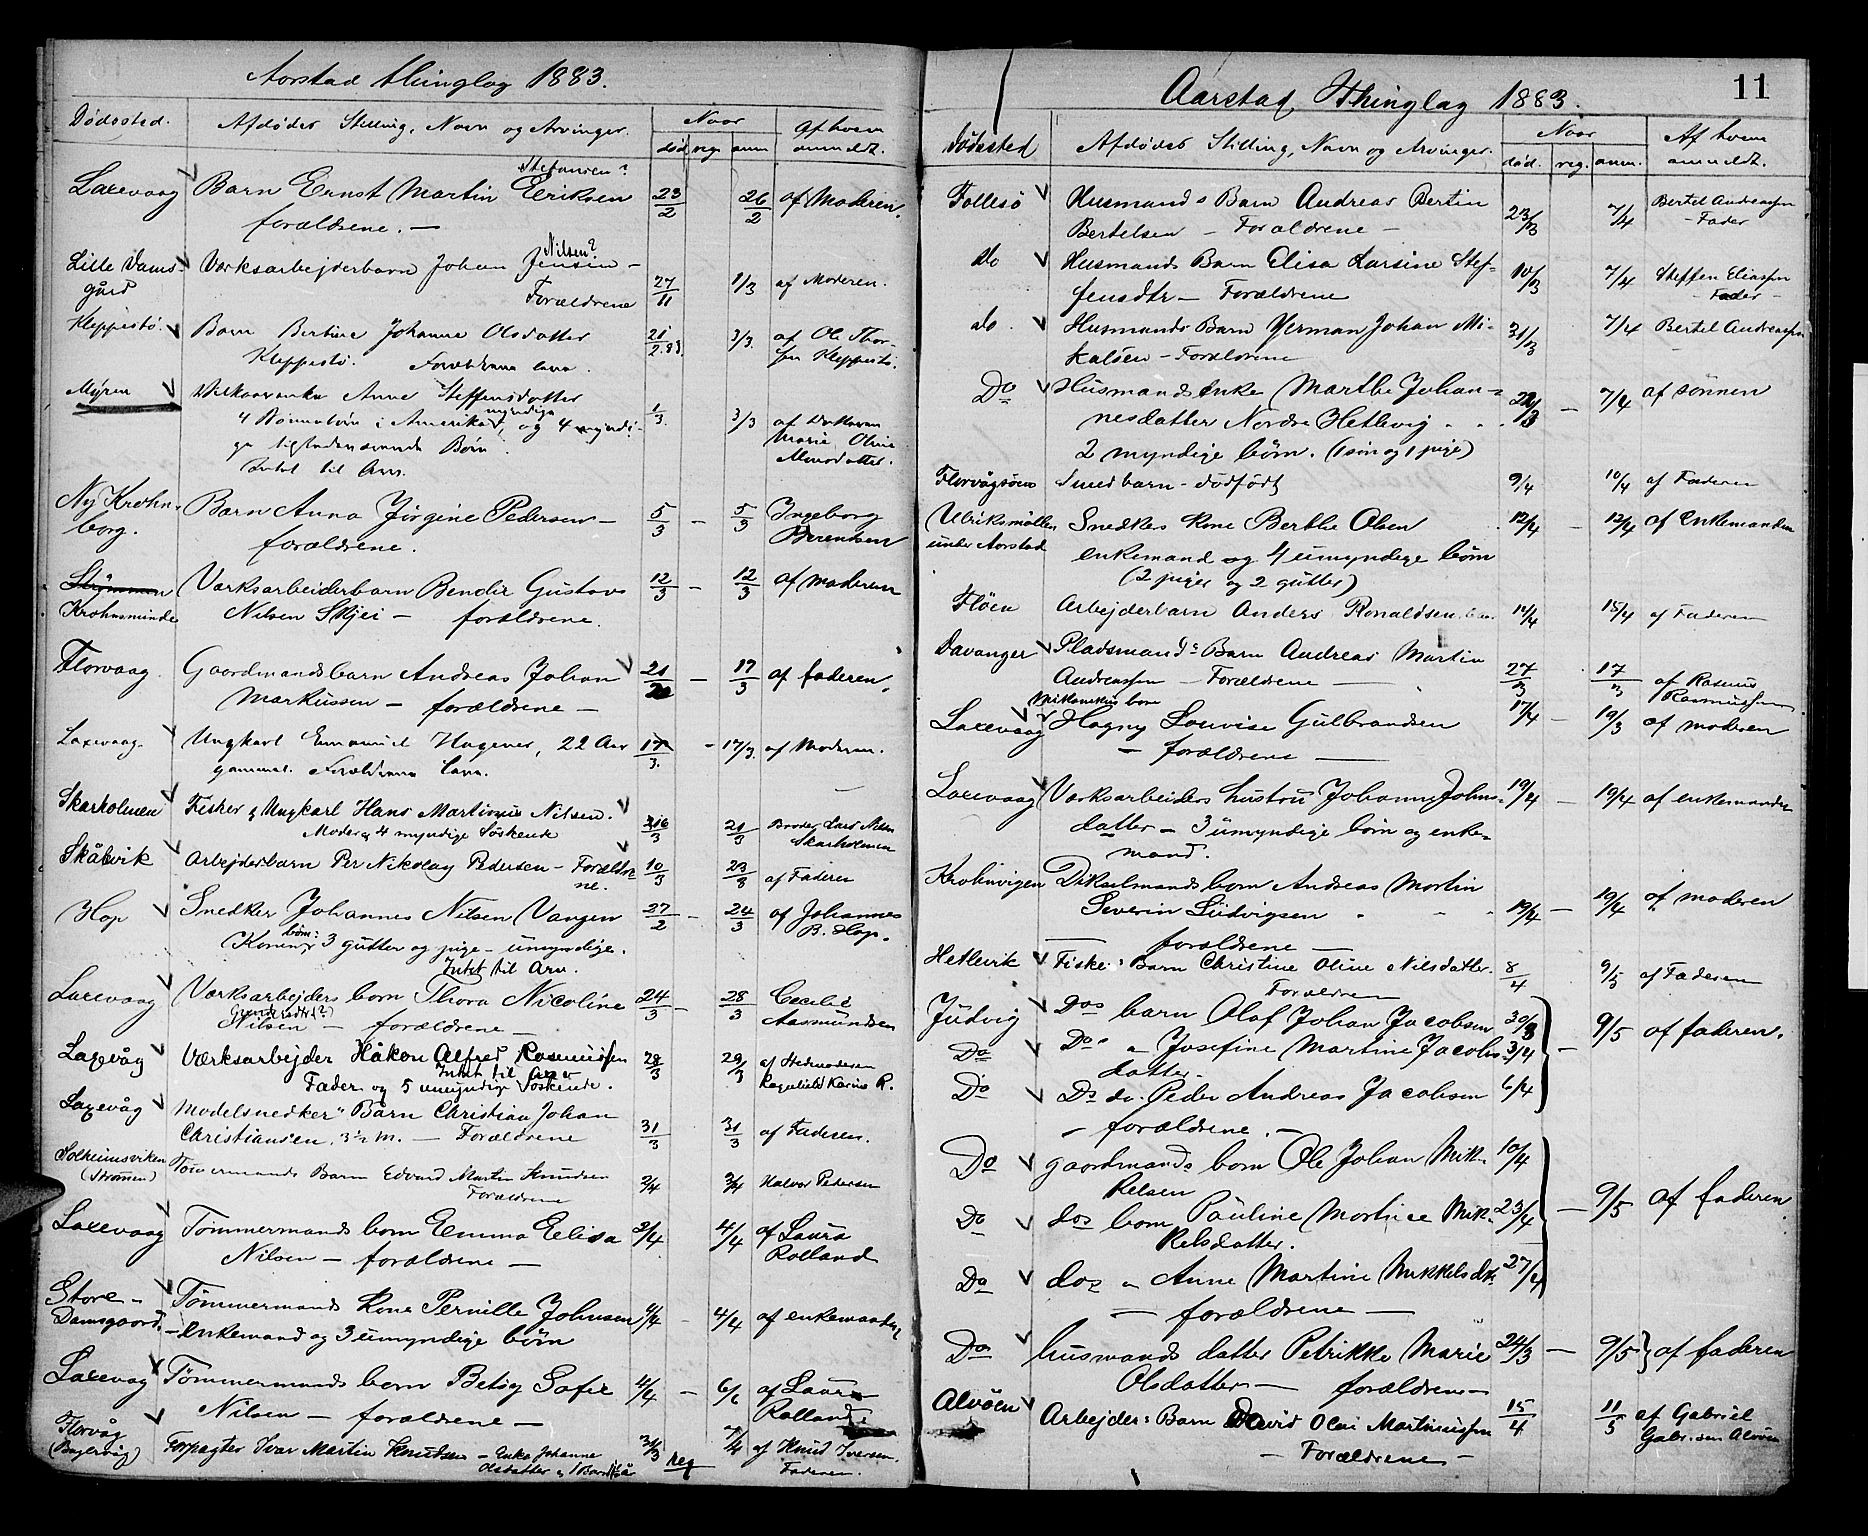 Aarstad thinglag 1883.
Dødssted. Afdødes Stilling, Navn og Arvinger. Naar Af hvem
død reg. anm anmeldt.
Stefansen?
Laxevaag Barn Ernst Martin Eriksen 23/2 26/2 af Moderen.
forældrene. —
Nilsen?
Lille Dams- Værksarbejderbarn Johan Jensen —
gård Forældrene 27/11 1/3 af Moderen.
Kleppestø. Barn Bertine Johanne Olsdatter 21/2.83 3/3. af Ole Thor-
Kleppestø. Forældrene leve. sen Kleppestø.
Myren Vilkaarsenke Anne Steffensdatter
myndige
4 Børnebørn i Amerika, og 4 myndi- 1/3. 3/3 af Datteren
ge tilstedeværende Børn. Marie Oline
Intet til Arv. Monsdatter
Ny Krohn- Barn Anna Jørgine Pedersen — 5/3 — 5/3 Ingeborg
borg. forældrene. Berentsen
Strømmen Værksarbeiderbarn Bendix Gustav 12/3 — 12/3 af moderen
Krohnsminde Nilsen Skjei — forældrene.
Florvaag. Gaardmandsbarn Andreas Johan 21/2 — 17/3 af faderen.
Markussen — forældrene —
Laxevaag. Ungkarl Emanuel Hagener, 22 Aar 17/3. - 17/3. af Moderen.
gammel. Forældrene leve.
Skarholmen Fisker & Ungkarl Hans Martinus Nilsen.
Moder & 4 myndige Søskende 16/3 21/3 Broder Lars Nilsen
Skarholmen
Skålvik Arbejderbarn Per Nikolay Pedersen — Forældre- 10/3 23/3 af Faderen
ne.
Hop Snedker Johannes Nilsen Vangen 27/2 — 24/3 af Johannes
børn:
Konen, 3 gutter og pige — umyndige. B. Hop.
Intet til Arv.
Laxevaag Værksarbejders barn Thora Nicoline 24/3 — 28/3 Cecilie
Nilsen — forældrene — Aasmundsen
Laxevåg Værksarbejder Håkon Alfred Rasmussen 28/3 29/3 af Stedmoderen
Intet til Arv
Fader og 5 umyndige Søskende. Ragnhild Karine R.
Laxevåg Modelsnedker" Barn Christian Johan
Christiansen, 3½ m. — Forældrene 31/3 31/3 af Faderen.
Solheimsviken Tømmermands Barn Edvard Martin Knudsen 2/4 3/4 Halvor Pedersen
(Strømmen) Forældrene
Laxevaag Tømmermands barn Emma Elisa 2/4 4/4 af Laura
Nilsen — forældrene — Rolland
Store- Tømmermands Kone Pernille Johnsen 4/4 — 4/4 af enkemanden
Damsgaard. — enkemand og 3 umyndige børn
Laxevag Tømmermands barn Betsy Sofie 4/4 — 6/4 af Laura
Nilsen — forældrene — Rolland
Florvåg Forpagter Ivar Martin Knudsen — Enke Johanne 31/3 reg 7/4 af Knud Iversen.
Olsdatter & 1 Barn Faderen.
11
Aarstad Thinglag 1883.
Dødssted Afdødes Stilling, Navn og Arvinger. Naar Af hvem
død. reg. anm. anmeldt.
Follesø Husmands Barn Andreas Bertin 23/3 7/4 Bertel Andreassen
Bertelsen — Forældrene — — Fader
do Husmands Barn Elisa Larsine Stef- 10/3 7/4 Steffen Eliassen
fensdtr — Forældrene — Fader —
do. Husmands Barn Herman Johan Mi- 31/3 7/4 Bertel Andreassen
kalsen — Forældrene
Do Husmands Enke Marthe Johan- 22/3 — 7/4 af sønnen
nesdatter Nordre Hetlevig
2 myndige børn. (1 søn og 1 pige)
Florvågsøen Smedbarn — dødfødt 9/4 10/4 af Faderen
Ulriksmøllen Snedkers Kone Berthe Olsen 12/4 — 12/4 af Enkemanden
under Aarstad enkemand og 4 umyndige børn
(2 piger og 2 gutter)
Fløen Arbejderbarn Anders Ronaldsen 14/4 15/4 af Faderen
Davanger Pladsmands Barn Andreas Martin
Andreassen — Forældrene — 27/3 17/3 af Rasmus
Rasmussen
Mekanikus barn
Laxevaag Hagny Lovise Gulbrandsen 17/4 — 19/3 af moderen
— forældrene —
Laxevaag Værksarbeiders hustru Johanne Johns- 19/4 — 19/4 af enkemanden
datter — 3 umyndige børn og enke-
mand.
Krohnvigen Dikselmands barn Andreas Martin
Severin Ludvigsen 19/4 — 19/4 af moderen
— forældrene —
Hetlevik Fisker: Barn Christine Oline Nilsdatter. 8/4 9/5 af Faderen
Forældren
Judvig Dos barn Olaf Johan Jacobsen 30/3 9/5 af faderen.
Do Do " Josefine Martine Jacobs- 3/4
datter —
Do Do do. Peder Andreas Jacobsen 6/4
— forældrene. —
Do gaardmands barn Ole Johan Mik- 10/4
kelsen
Do dos barn Pauline Martine Mik- 23/4 — 9/5 af faderen
kelsdatter.
Do dos " Anne Martine Mikkelsdtr. 27/4
— forældrene —
Do husmands datter Petrikke Marie 24/3 — 9/5 af faderen
Olsdatter — forældrene —
Alvøen Arbejder: Barn David Olai Martinussen 15/4 11/5 af Gabriel
— Forældrene — Gabrielsen Alvøen